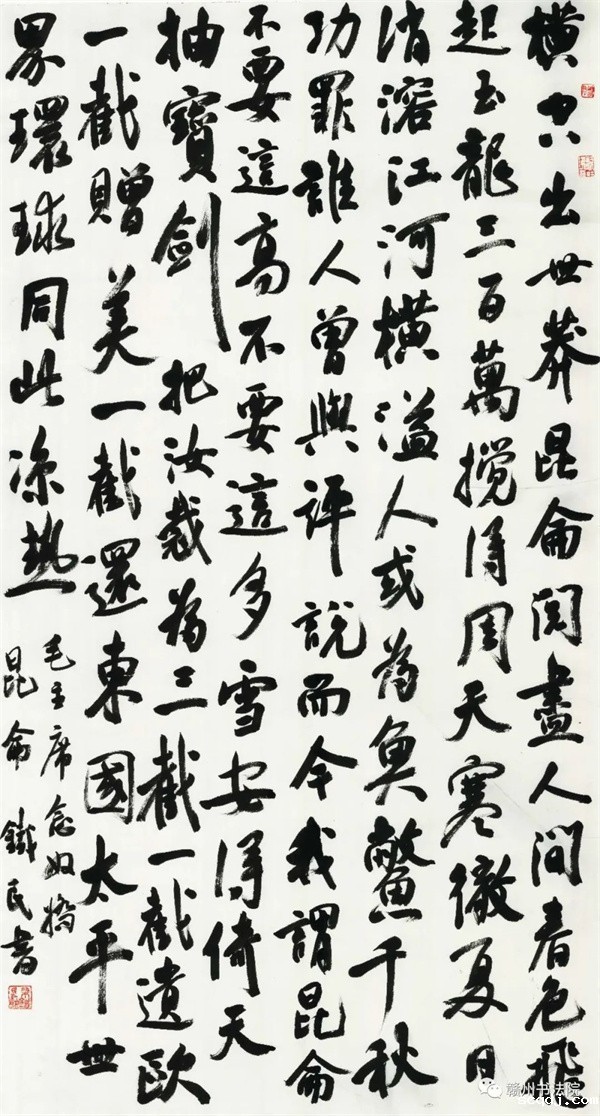 橫空出世莽昆侖閱盡人間春色飛
起玉龍三百萬攪得周天寒徹夏日
消溶江河橫溢人或為魚鱉千秋
功罪誰人曾與評說而今我謂昆侖
不要這高不要這多雪安得倚天
抽寶劍把汝裁為三截一截遺歐
一截贈美一截還東國太平世
界環球同此涼熱
毛主席念奴嬌
昆侖 鐵民書
赣州书法院